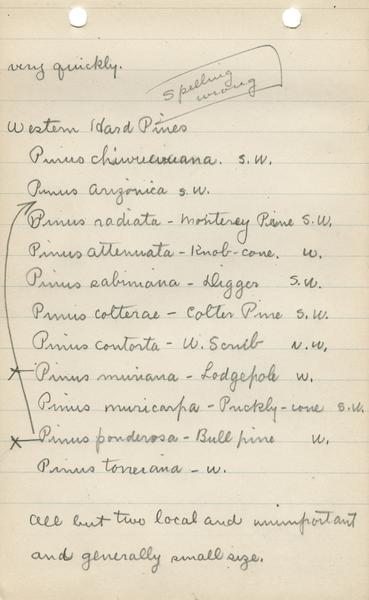 very quickly.
Spelling
wrong
Western Hard Pines
Pinus chiuuauana. S.W.
Pinus arizonica S.W.
Pinus radiata - Monterey Pine S.W.
Pinus attenuata - Knob-cone. W.
Pinus sabiniana - Digger S.W.
Pinus colterae - Colter Pine S.W.
Pinus contorta - W. Scrub N.W.
x Pinus muriana - Lodgepole W.
Pinus muricarpa - Prickly-cone S.W.
x Pinus ponderosa - Bull pine W.
Pinus torreriana - W.
All but two local and unimportant
and generally small size.